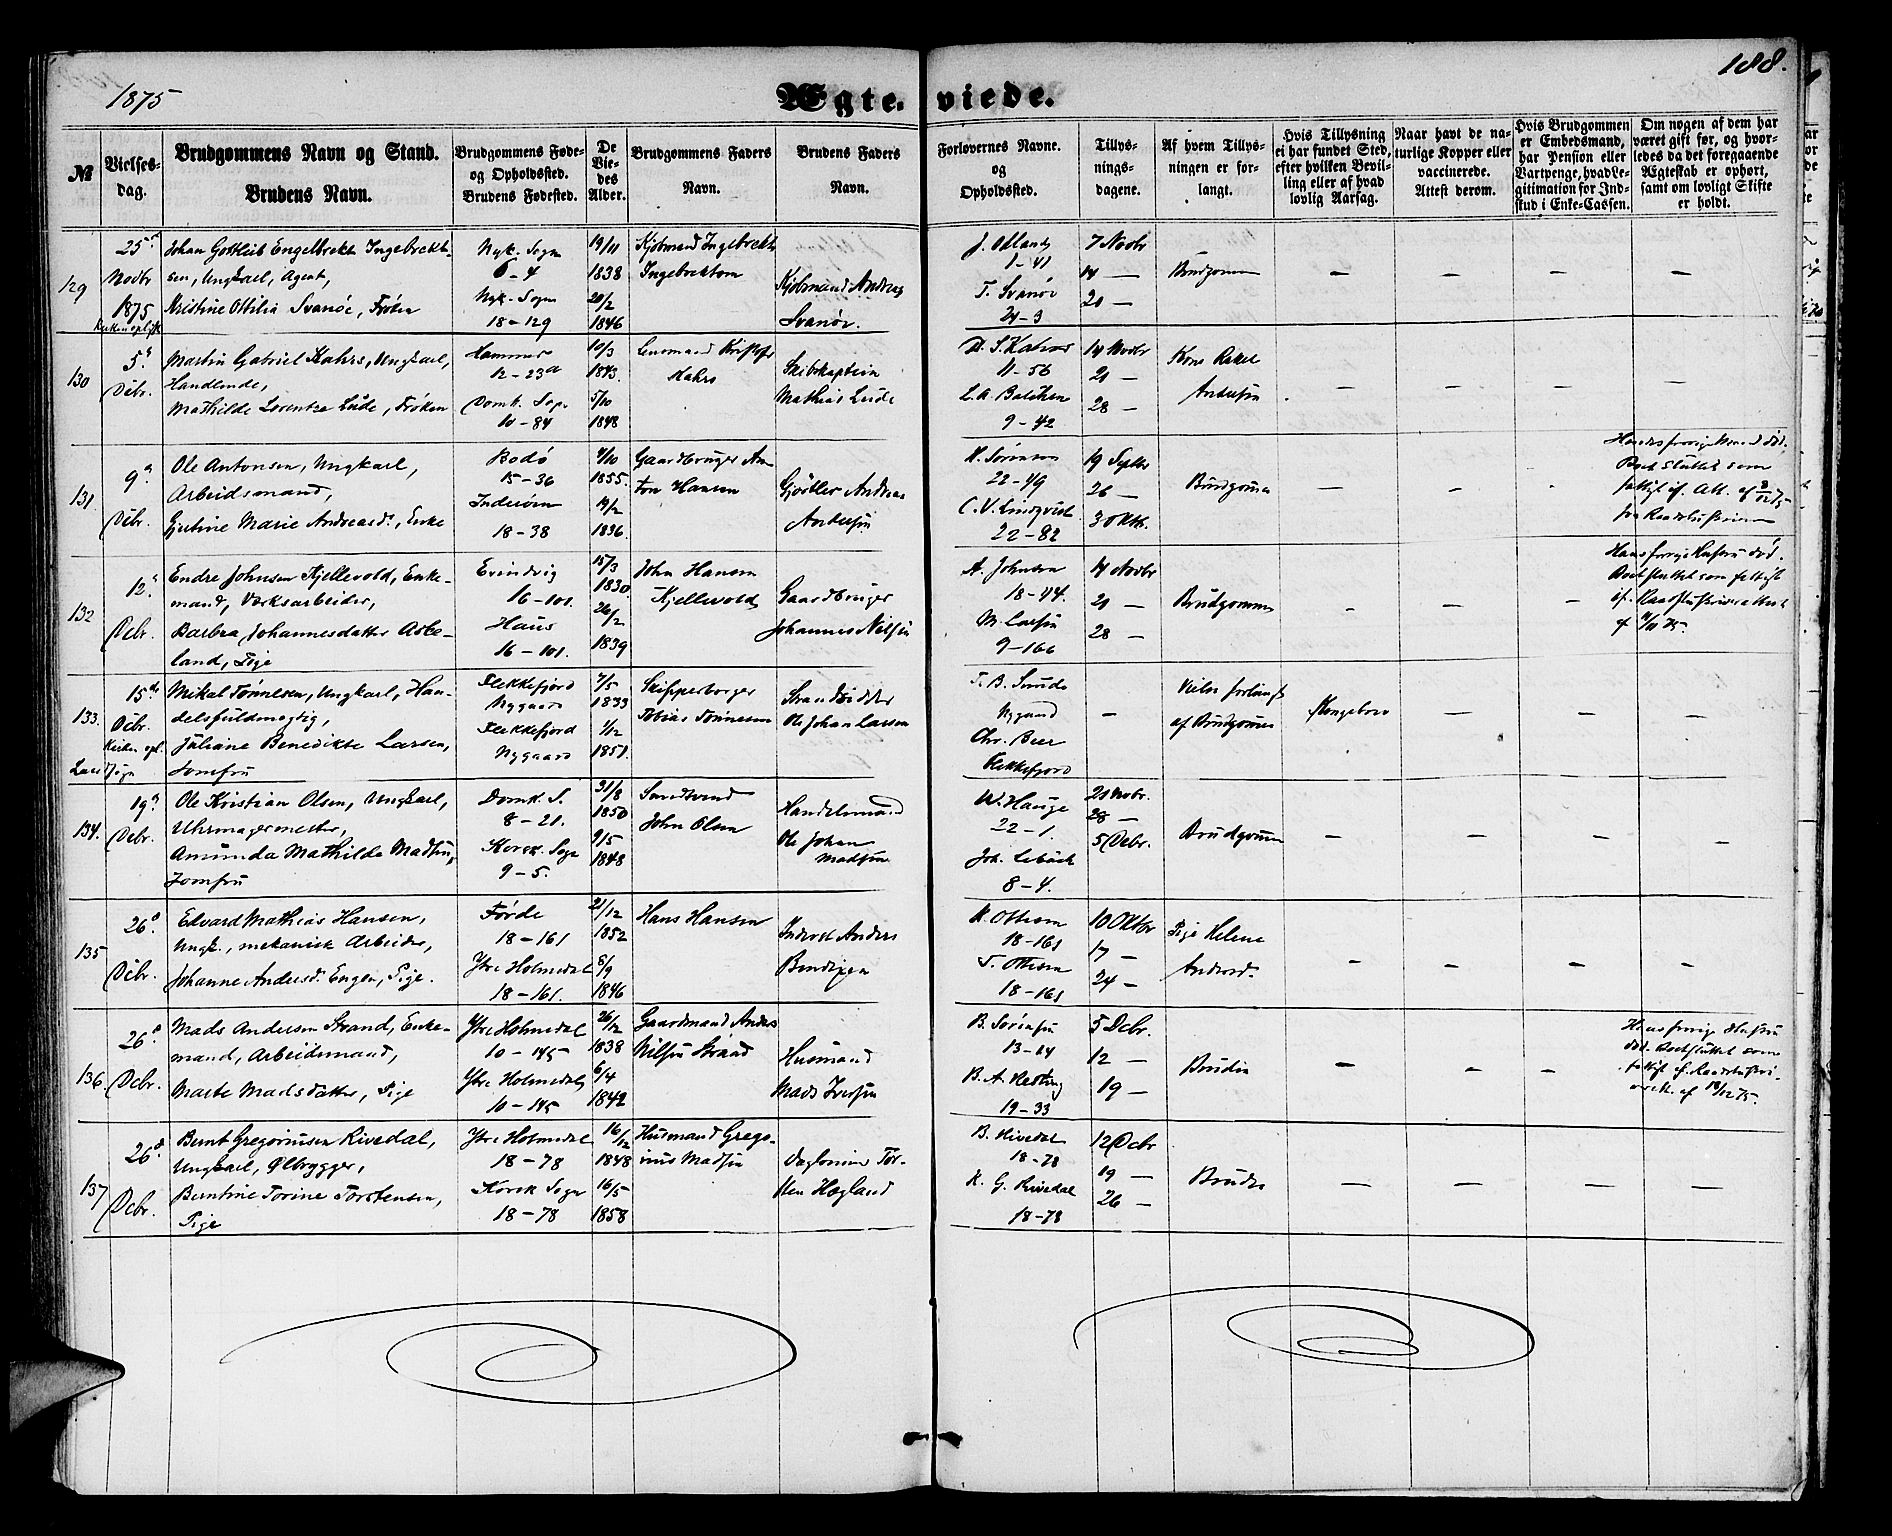 1875
Ægte-viede.
188.
№
Vielses-
dag.
Brudgommens Navn og Stand.
Brudens Navn.
Brudgommens Føde-
og Opholdssted.
Brudens Fødested.
De
Vie-
des
Alder.
Brudgommens Faders
Navn.
Brudens Faders
Navn.
Forlovernes Navne.
og
Opholdssted.
Tillys-
nings-
dagene.
Af hvem Tillys-
ningen er for-
langt.
Hvis Tillysning
ei har fundet Sted,
efter hvilken Bevil-
ling eller af hvad
lovlig Aarsag.
Naar havt de na-
turlige Kopper eller
vaccinerede.
Attest derom.
Hvis Brudgommen
er Embedsmand,
har Pension eller
Vartpenge, hvad Le-
gitimation for Ind-
skud i Enke-Cassen.
Om nogen af dem har
været gift før, og hvor-
ledes da det foregaaende
Ægteskab er ophørt,
samt om lovligt Skifte
er holdt.
129
25
Novbr
1875
Johan Gottlieb Engelbrekt Ingebrekt-
sen, Ungkarl, Agent,
Kristine Ottilia Svanøe, Frøken
Nyk. Sogn
6-4
Nyk. Sogn
18-129
19/11
1838
20/2
1846
Kjøbmand Ingebrekt
Ingebrektsen
Kjøbmand Andreas
Svanøe.
1-41
T. Svanøe
24-3
7 Novbr
14 —
21 —
Brudgommen
— — — —
130
5
Dcbr.
Martin Gabriel Kahrs, Ungkarl,
Handlende,
Mathilde Lorentze Lude, Frøken
Hammer
12-23a
Domk. Sogn
10-84
10/3
1843.
5/10
1848
Kahrs
Skibskaptein
Mathias Lude
D. S. Kahrs
11-56
L. A. Balchen
9-42
14 Novbr
21 —
28 —
Kone Rakel
Andersen
— — — —
131
9
Dcbr.
Ole Antonsen, Ungkarl,
Arbeidsmand,
Gjertine Marie Andreasd., Enke
Bodø
15-36
Inderøen
18-38
4/10
1855.
19/2
1836.
Gaardbruger An-
ton Hansen
Gjørtler Andreas
Andersen
N. Sørensen
22-49
C. V. Lindqvist
22-82
19 Septbr
26 —
3 Oktb.
Brudgommen
— —
Hendes forrige Mand død,
Boet sluttet som
fattigt
132
12
Dcbr.
Endre Johnsen Kjellevold, Enke-
mand, Værksarbeider,
Barbra Johannesdatter Aske-
land, Pige
Evindvig
16-101.
Haus
16-101.
15/3
1830.
26/2
1839
John Hansen
Kjellevold
Gaardbruger
Johannes Nilsen
A. Johnsen
18-44.
M. Larsen
9-166
14 Novbr
21 —
28 —
Brudgommen
— — —
Hans forrige Hustru død.
Boet sluttet som fattigt
133.
15
Dcbr.
Mikal Tønnesen, Ungkarl, Han-
delsfuldmegtig,
Juliane Benedikte Larsen,
Jomfru
Flekkefjord
Nygaard
Flekkefjord
Nygaard
7/5
1833
1/12
1851.
Skipperborger
Tobias Tønnesen
Strandsidder
Ole Johan Larsen
Nygaard
Chr. Beer
Flekkefjord
—
Vielse forlangt
af Brudgommen
Kongebrev
— — —
134.
19
Dcbr.
Ole Kristian Olsen, Ungkarl,
Uhrmagermester,
Amunda Mathilde Madsen,
Jomfru
Domk. S.
8-21.
Korsk. Sogn
9-5.
31/8
1850
9/5
1848
John Olsen
Handelsmand
Ole Johan
Madsen
W. Hauge
22-1.
8-4.
21 Novbr.
28 —
5 Dcbr.
Brudgommen
— — — —
135
26
Dcbr.
Edvard Mathias Hansen,
Ungk., mekanisk Arbeider,
Johanne Andersd. Engen, Pige.
Førde
18-161
Ytre Holmedal
18-161.
21/12
1852
8/9
1846
Hans Hansen
Inderst Anders
Bendixen
K. Ottesen
18-161
T. Ottesen
18-161
10 Oktbr
17 —
24 —
Pige Helene
Andersd.
— — — —
136.
26
Dcbr.
Mads Andersen Strand, Enke-
mand, Arbeidsmand,
Marte Madsdatter, Pige
Ytre Holmedal
10-145
Ytre Holmedal
10-145
26/12
1838
6/4
1842
Gaardmand Anders
Nilsen Strand
Husmand
Mads Iversen
B. Sørensen
13-14
19-33
5 Dcbr.
12 —
19 —
Bruden
— — —
Hans forrige Hustru
død. Boet sluttet som
fattigt
137
26
Dcbr.
Bernt Gregoriusen Rivedal,
Ungkarl, Ølbrygger,
Berntine Torine Torstensen,
Pige
Ytre Holmedal
18-78
Korsk Sogn
18-78
16/12
1848
16/5
1858
Husmand Grego-
rius Madsen
Daglønner Tor-
sten Høgland
B. Rivedal
18-78
K. G. Rivedal
18-78
12 Dcbr
19 —
26 —
Bruden
— — — —